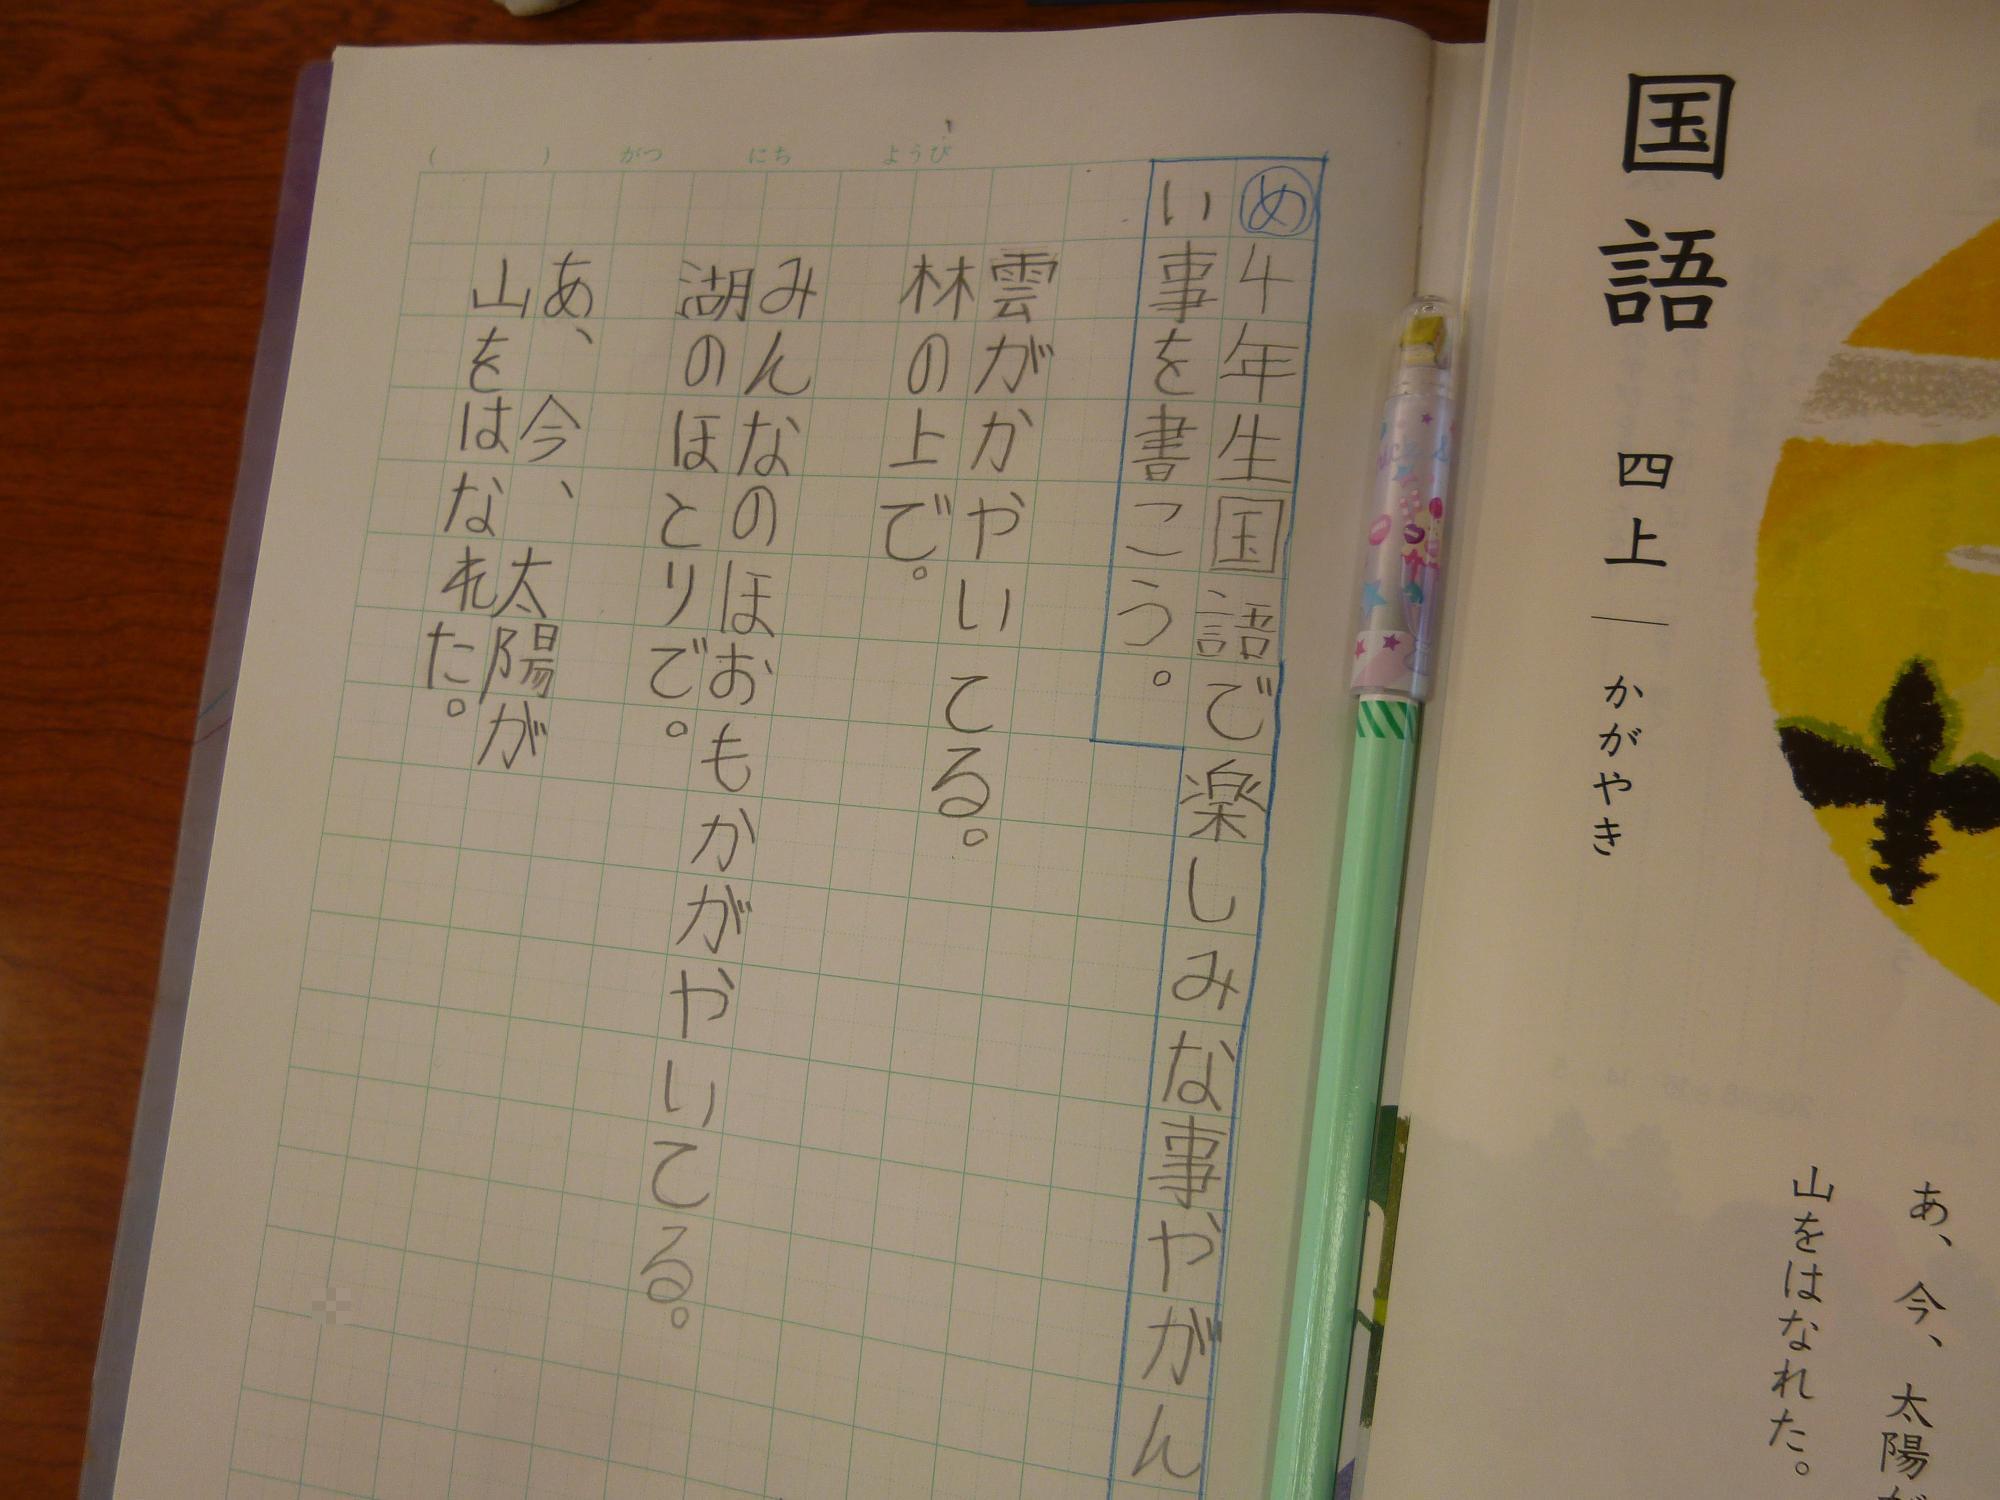 国語 四上 かがやき
あ、今、太陽が
山をはなれた。
( ) がつ にち ようび
め 4年生国語で楽しみな事やがん
い事を書こう。
雲がかやいてる。
林の上で。
みんなのほおもかがやいてる。
湖のほとりで。
あ、今、太陽が
山をはなれた。